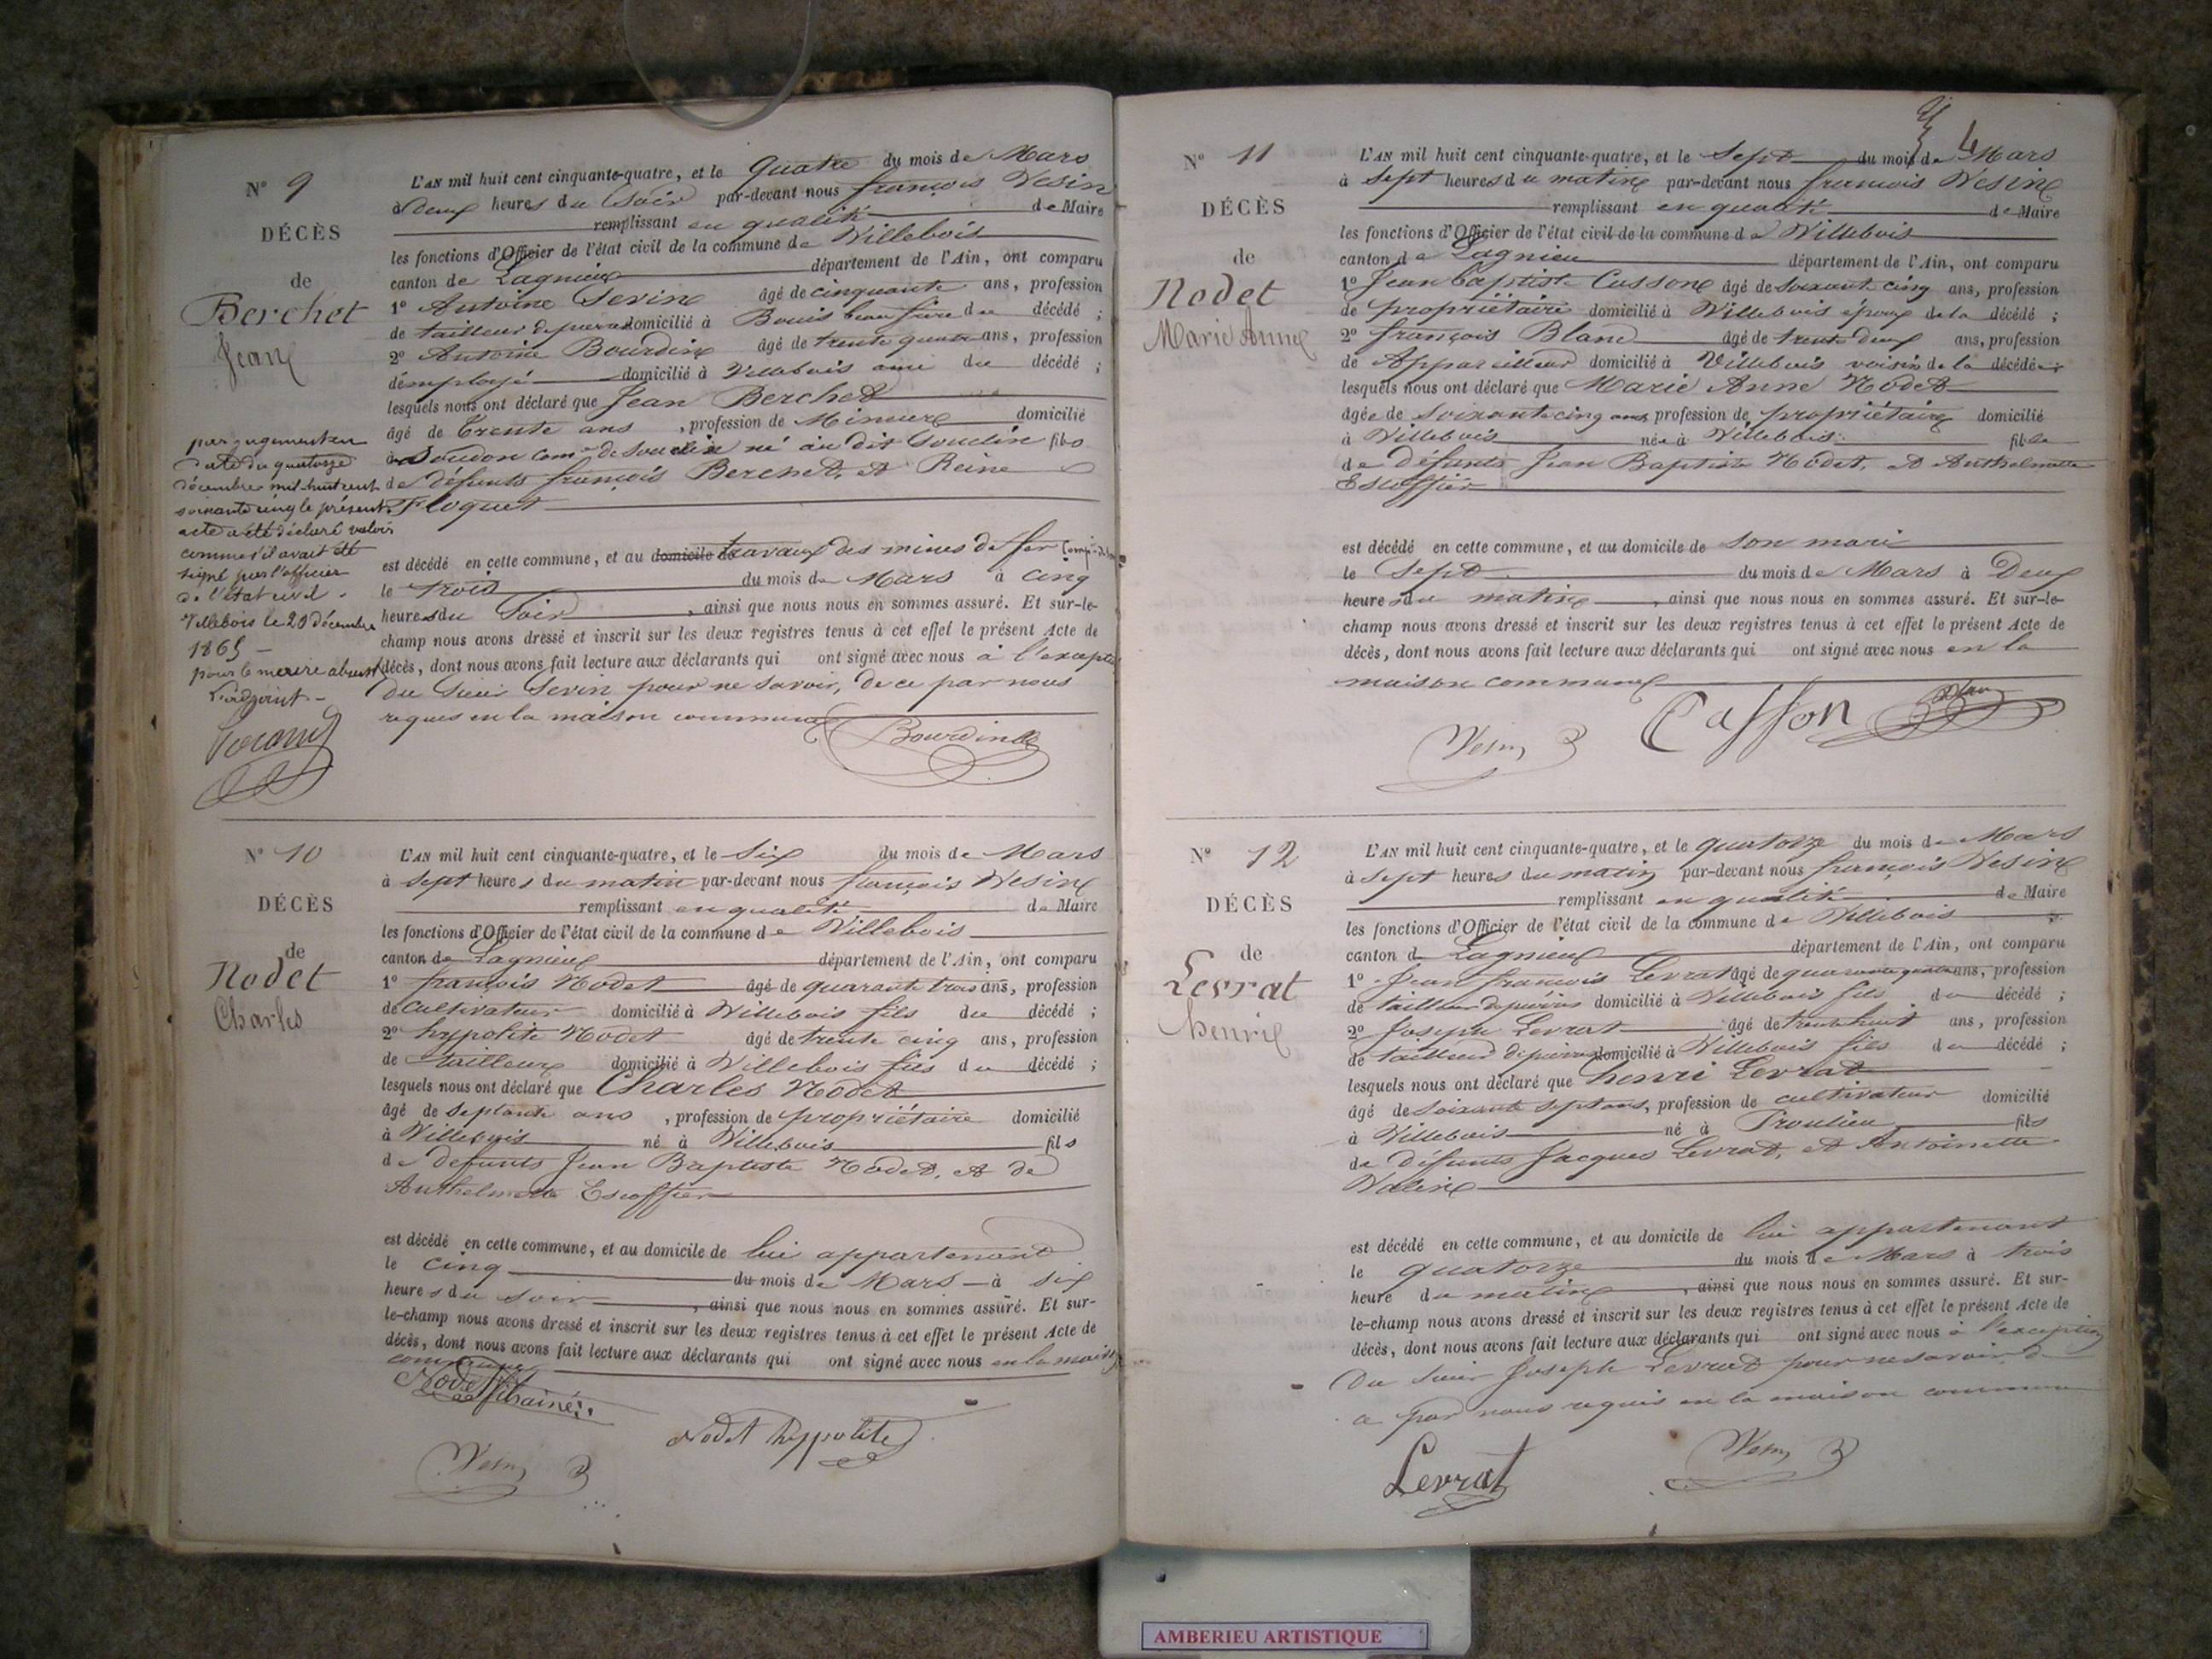 N° 9
DÉCÈS
de
Berchet
Jean
par jugement en
date du quatorze
décembre mil huit cent
soixante cinq le présent
acte a été déclaré valoir
comme s'il avait été
signé par l'officier
de l'état civil.
Villebois le 29 décembre
1865 —
pour le maire absent
L'adjoint —
L'AN mil huit cent cinquante-quatre, et le Quatre du mois de Mars
à deux heures du Soir par-devant nous françois Vesin
remplissant en qualité de Maire
les fonctions d'Officier de l'état civil de la commune de Villebois
canton de Lagnieu département de l'Ain, ont comparu
1° Antoine Sevin âgé de cinquante ans, profession
de tailleur de pierres domicilié à Bouis beau frère du décédé ;
2° Antoine Bourdin âgé de trente quatre ans, profession
d'employé domicilié à Villebois ami du décédé ;
lesquels nous ont déclaré que Jean Berchet
âgé de Trente ans , profession de Mineur domicilié
à Soudon com.e de Souclin né au dit Souclin fils
de défunts françois Berchet, et Reine
Floquet
est décédé en cette commune, et au domicile de travaux des mines de fer
le trois du mois de Mars à cinq
heures du Soir , ainsi que nous nous en sommes assuré. Et sur-le-
champ nous avons dressé et inscrit sur les deux registres tenus à cet effet le présent Acte de
décès, dont nous avons fait lecture aux déclarants qui ont signé avec nous à l'exception
du sieur Sevin pour ne savoir, de ce par nous
requis en la maison commune
Bourdin
N° 10
DÉCÈS
de
Nodet
Charles
L'AN mil huit cent cinquante-quatre, et le Six du mois de Mars
à sept heures du matin par-devant nous françois Vesin
remplissant en qualité de Maire
les fonctions de l'Officier de l'état civil de la commune de Villebois
canton de Lagnieu département de l'Ain, ont comparu
1° françois Nodet âgé de quarante trois ans, profession
de cultivateur domicilié à Villebois fils du décédé ;
2° hypolite Nodet âgé de trente cinq ans, profession
de tailleur domicilié à Villebois fils du décédé ;
lesquels nous ont déclaré que Charles Nodet
âgé de septante ans , profession de propriétaire domicilié
à Villebois né à Villebois fils
de défunts Jean Baptiste Nodet, et de
Anthelmette Escoffier
est décédé en cette commune, et au domicile de lui appartenant
le cinq du mois de Mars à six
heures du soir , ainsi que nous nous en sommes assuré. Et sur-
le-champ nous avons dressé et inscrit sur les deux registres tenus à cet effet le présent Acte de
décès, dont nous avons fait lecture aux déclarants qui ont signé avec nous en la maison
commune
Nodet fils ainé
Nodet hyppolite
Vesin
4
N° 11
DÉCÈS
de
Nodet
Marie Anne
L'AN mil huit cent cinquante-quatre, et le Sept du mois de Mars
à Sept heures du matin par-devant nous françois Vesin
remplissant en qualité de Maire
les fonctions d'Officier de l'état civil de la commune de Villebois
canton de Lagnieu département de l'Ain, ont comparu
1° Jean baptiste Casson âgé de soixante cinq ans, profession
de propriétaire domicilié à Villebois époux de la décédé ;
2° françois Blanc âgé de trente deux ans, profession
de Appareilleur domicilié à Villebois voisin de la décédée ;
lesquels nous ont déclaré que Marie Anne Nodet
âgée de Soixante cinq ans, profession de propriétaire domicilié
à Villebois née à Villebois fille
de défunts Jean Baptiste Nodet, et Anthelmette
Escoffier
est décédé en cette commune, et au domicile de son mari
le Sept du mois de Mars à Deux
heures du matin , ainsi que nous nous en sommes assuré. Et sur-le-
champ nous avons dressé et inscrit sur les deux registres tenus à cet effet le présent Acte de
décès, dont nous avons fait lecture aux déclarants qui ont signé avec nous en la
maison commune
Vesin Casson Blanc
N° 12
DÉCÈS
de
Levrat
henri
L'AN mil huit cent cinquante-quatre, et le quatorze du mois de Mars
à sept heures du matin par-devant nous françois Vesin
remplissant en qualité de Maire
les fonctions d'Officier de l'état civil de la commune de Villebois
canton de Lagnieu département de l'Ain, ont comparu
1° Jean françois Levrat âgé de quarante quatre ans, profession
de tailleur de pierres domicilié à Villebois fils du décédé ;
2° Joseph Levrat âgé de trente huit ans, profession
de tailleur de pierres domicilié à Villebois fils du décédé ;
lesquels nous ont déclaré que henri Levrat
âgé de soixante sept ans, profession de cultivateur domicilié
à Villebois né à Proulieu fils
de défunts Jacques Levrat, et Antoinette
est décédé en cette commune, et au domicile de lui appartenant
le quatorze du mois de Mars à trois
heure du matin , ainsi que nous nous en sommes assuré. Et sur-
le-champ nous avons dressé et inscrit sur les deux registres tenus à cet effet le présent Acte de
décès, dont nous avons fait lecture aux déclarants qui ont signé avec nous à l'exception
Du sieur Joseph Levrat pour ne savoir, de
ce par nous requis en la maison commune
Levrat Vesin
AMBERIEU ARTISTIQUE